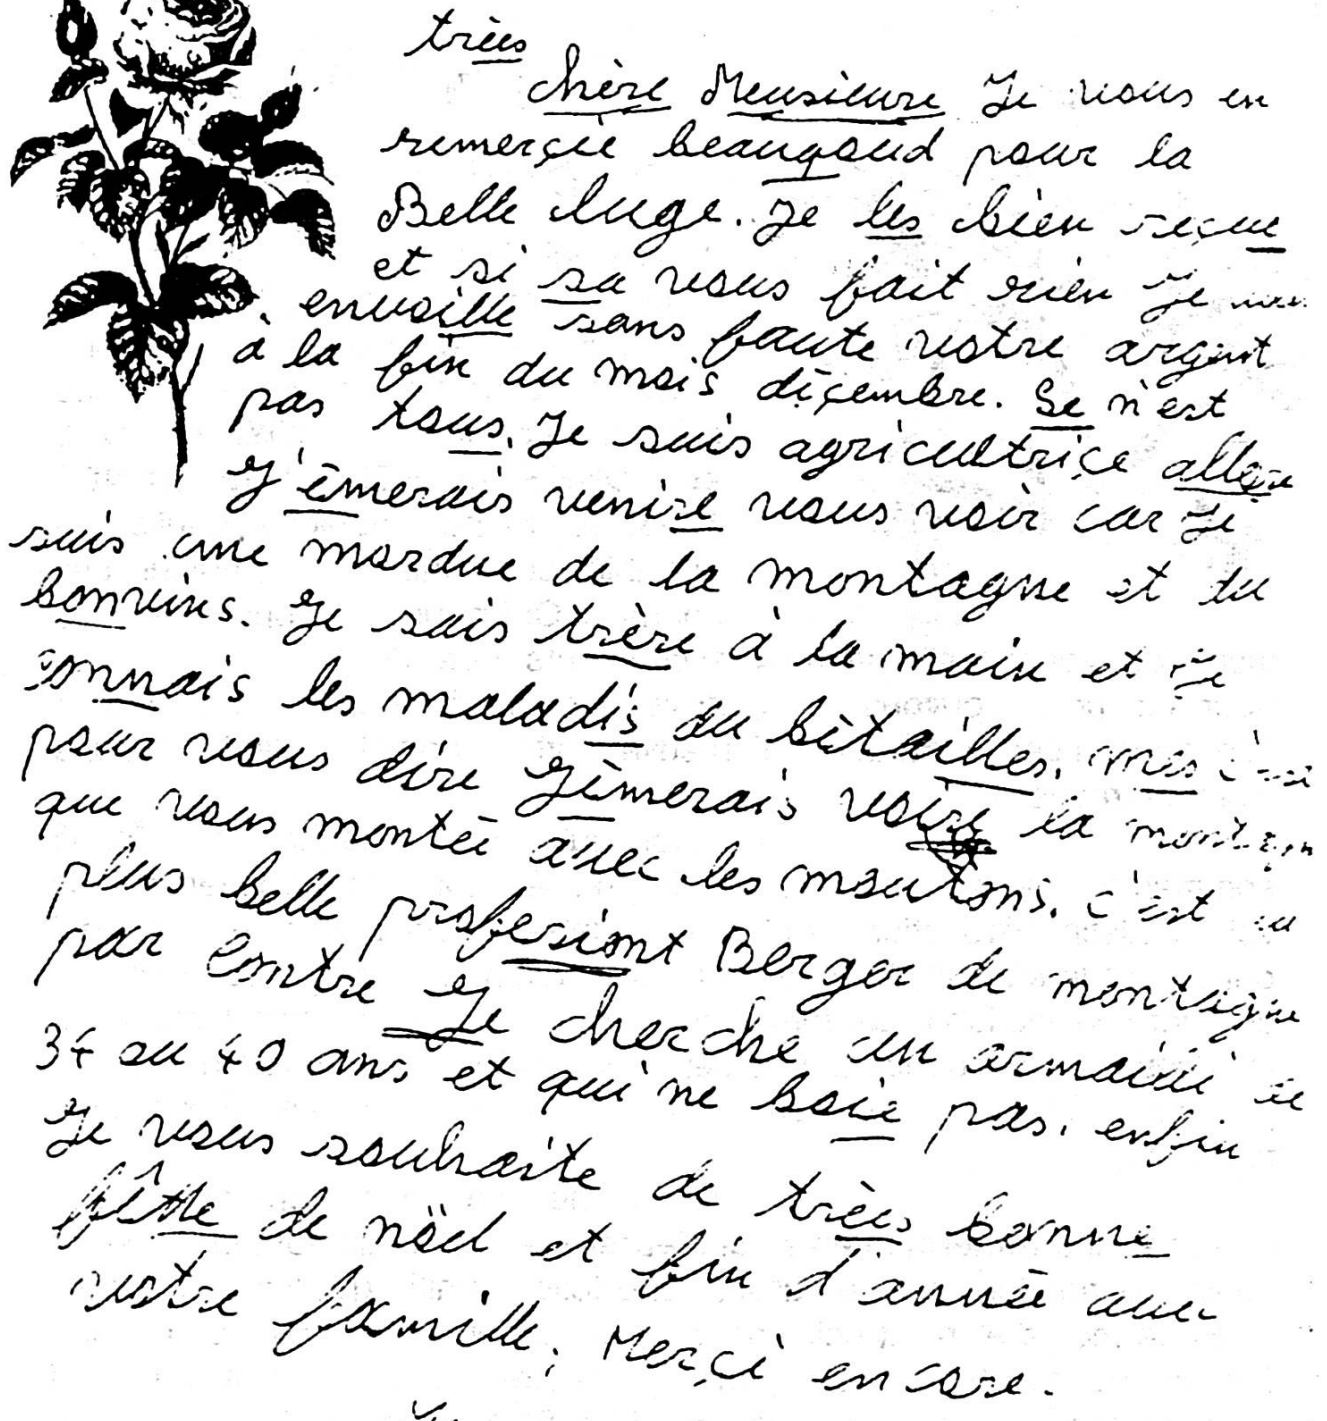 trèes
chère Meusieure Je vous en
remerçié beaugoud pour la
Belle luge. Je les bién reçue
et si sa vous fait rien Je
envoille sans faute votre argent
à la fin du mois déçembre. Se n'est
pas tous. Je suis agricultriçe allore
J'émerais venire vous voir car Je
suis une mordue de la montagne et du
bonvins. Je sais trère à la main et Je
connais les maladis du bétailles. mes c'est
pour vous dire J'émerais voire la montagne
que vous monteé avec les moutons. c'est la
plus belle profesiont Berger de montagne
par contre Je cherche un armailli de
34 au 40 ans et qui ne boie pas. enfin
Je vous souhaite de trèes bonne
fêtte de nöel et fin d'année avec
votre famille, Merçi encore.